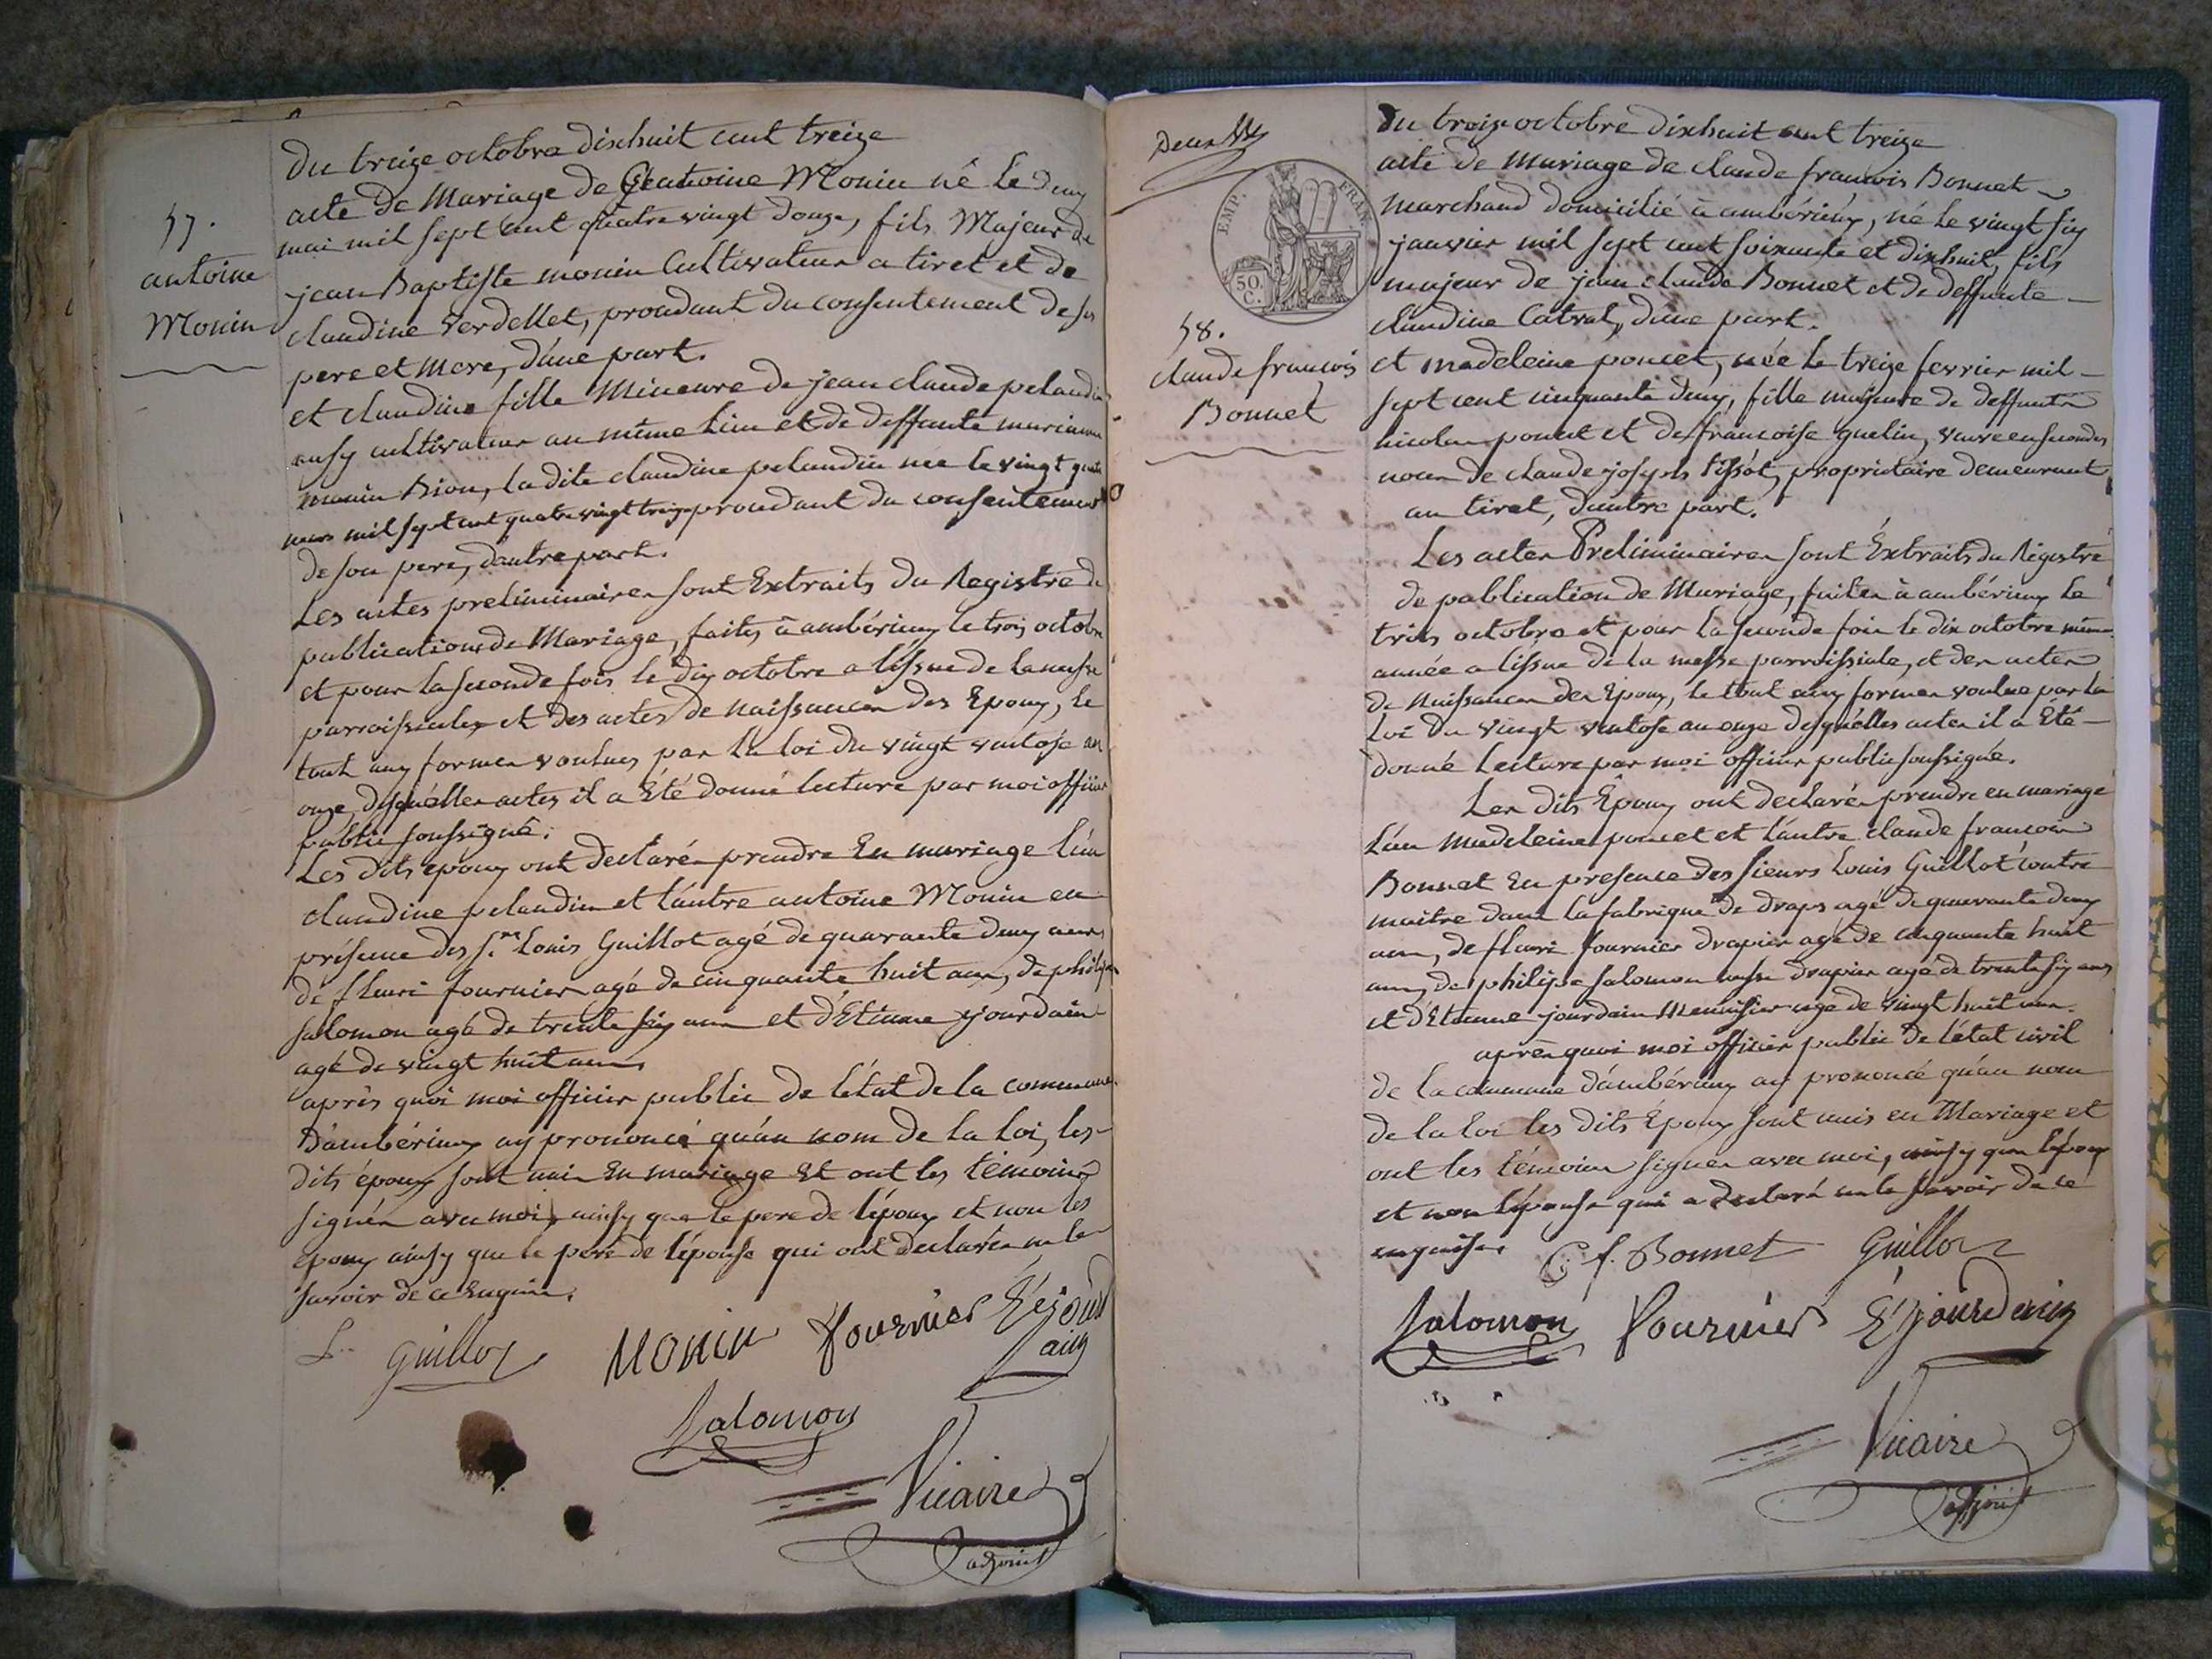 57.
antoine
Monin
Du treize octobre dixhuit cent treize
acte de Mariage de antoine Monin né le deux
mai mil sept cent quatre vingt douze, fils Majeur de
jean Baptiste monin Cultivateur a tiret et de
claudine Verdellet, procedant du consentement de ses
pere et Mere, d'une part.
et claudine fille Mineure de jean claude pelandin
ausy cultivateur au même lieu et de deffunte
monin Bion, la dite claudine pelandin nee le vingt quatre
mars mil sept cent quatre vingt treize procedant du consentement
de son pere, d'autre part.
Les actes preliminaires sont Extraits du Registre de
publications de Mariage, faites à ambérieux le trois octobre
et pour la seconde fois le dix octobre a l'issue de la messe
parroissiale et des actes de naissances des Epoux, le
tout aux formes voulues par la loi du vingt ventose an
onze, desquelles actes il a Eté donné lecture par moi officier
public soussigné.
Les dits epoux ont declarés prendre En mariage l'un
claudine pelandin et l'autre antoine Monin en
présence des S.rs Louis Guillot agé de quarante deux ans
de fleuri fournier agé de cinquante huit ans, de philipe
salomon agé de trente six ans et d'Etienne jourdain
agé de vingt huit ans
après quoi moi officier public de l'état de la commune
D'ambérieux ay prononcé qu'au nom de la loi, les
dits époux sont unis En mariage Et ont les témoins
signés avec moi, ainsy que le pere de l'époux et non les
epoux ainsy que le pere de l'épouse qui ont declarés ne le
savoir de ce Enquis.
L. Guillot Monin fournier E jourd
ain
Salomon
Vicaire
adjoint
Deux
EMP. FRAN.
50. C.
58.
claude francois
Bonnet
Du treize octobre dixhuit cent treize
acte de Mariage de claude francois Bonnet
marchand domicilié à ambérieux, né le vingt six
janvier mil sept cent soixante et dixhuit, fils
majeur de jean claude Bonnet et de deffunte
claudine Catral, d'une part.
et madeleine poncet, née le treize fevrier mil
sept cent cinquante deux, fille majeure de deffunts
nicolas poncet et de francoise guelin, veuve en secondes
noces de claude joseph tissot, propriétaire demeurant
au tiret, d'autre part.
Les actes Preliminaires sont Extraits du Régistre
de publication de Mariage, faites à ambérieux le
trois octobre et pour la seconde fois le dix octobre même
année a l'issue de la messe parroissiale, et des actes
de Naissances des Epoux, le tout aux formes voulues par la
Loi du vingt ventose an onze desquelles actes il a Eté
donné Lecture par moi officier public soussigné.
Les dits Epoux ont declarés prendre en mariage
L'un Madeleine poncet et L'autre claude francois
Bonnet En presence des sieurs Louis Guillot contre
maitre dans la fabrique de draps agé de quarante deux
ans, de fleuri fournier drapier agé de cinquante huit
ans, de philipe salomon aussi drapier agé de trente six ans
et d'Etienne jourdain Menuisier agé de vingt huit ans.
après quoi moi officier public de l'état civil
de la commune d'ambérieux ay prononcé qu'au nom
de la loi les dits Epoux sont unis en Mariage et
ont les témoins signés avec moi, ainsy que l'époux
et non l'épouse qui a declaré ne le savoir de ce
enquise.
C. f. Bonnet Guillot
Salomon fournier E jourdain
Vicaire
adjoint